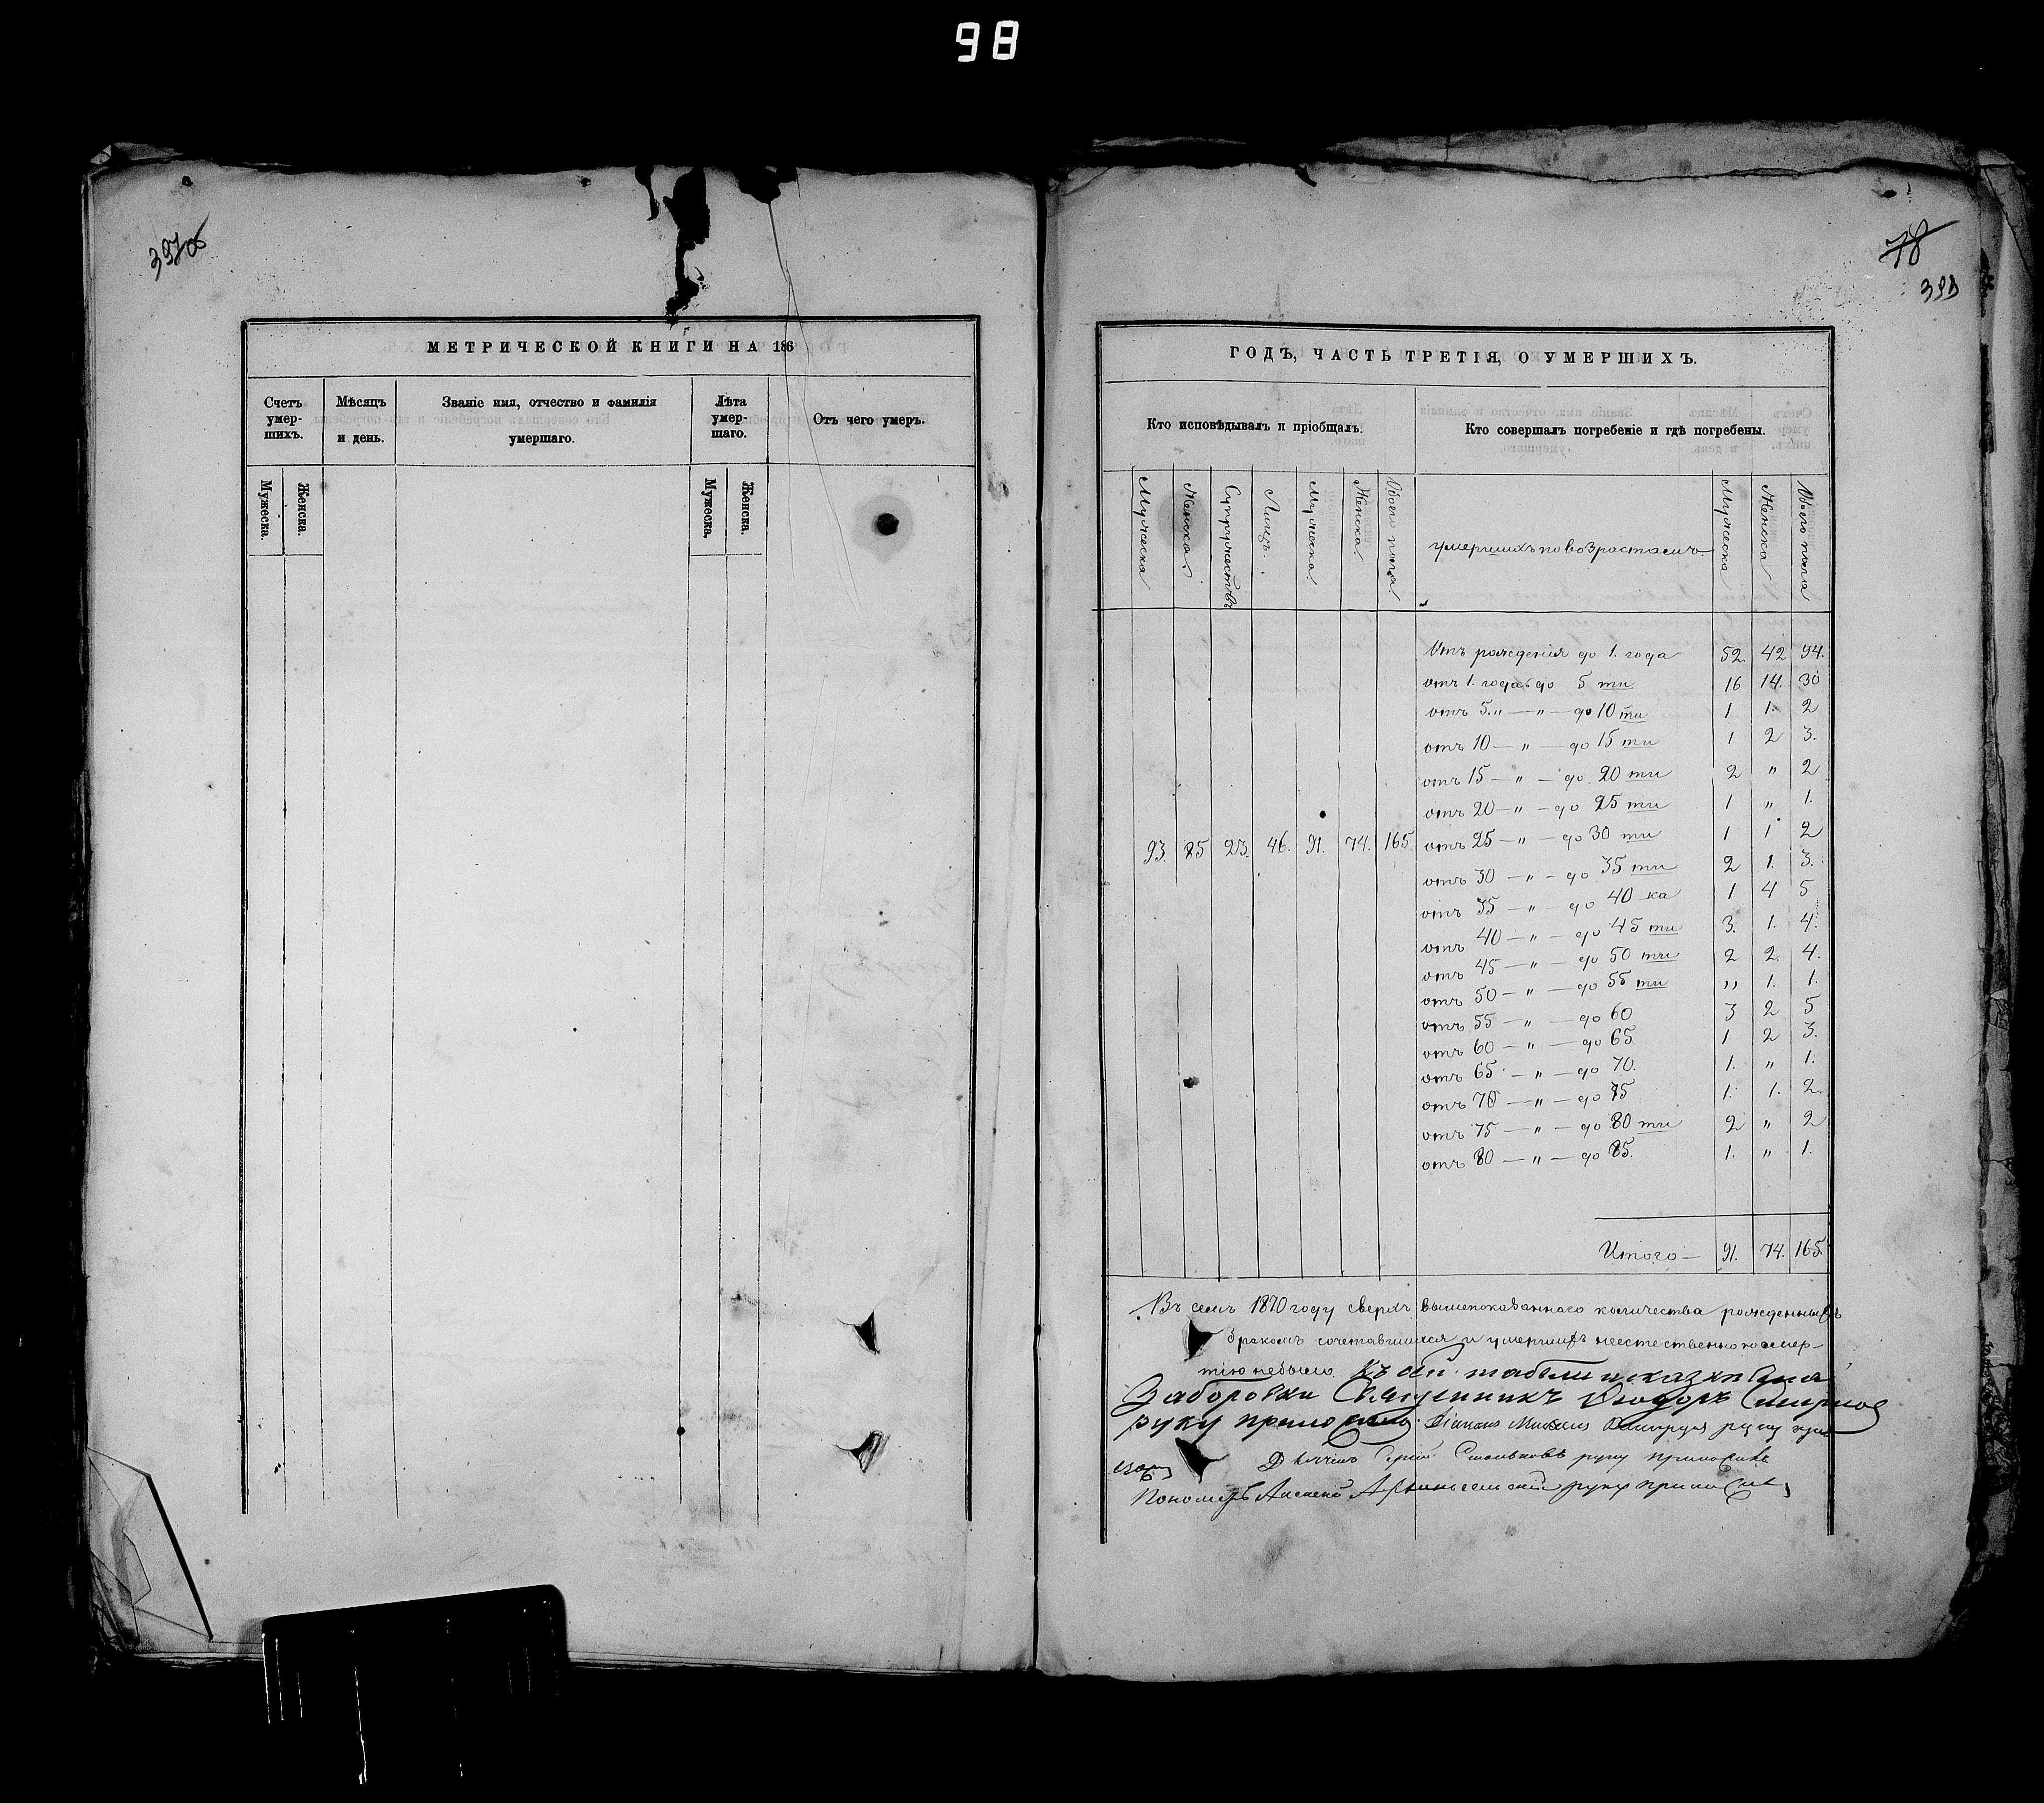 98
397об
МЕТРИЧЕСКОЙ КНИГИ НА 186
Счетъ умер-шихъ.
Мѣсяцъ и день.
Званіе имя, отчество и фамилія умершаго.
Лѣта умер-шаго.
Отъ чего умеръ.
Мужеска.
Женска.
Мужеска.
Женска.
78
398
ГОДЪ, ЧАСТЬ ТРЕТІЯ, О УМЕРШИХЪ.
Кто исповѣдывалъ и пріобщалъ.
Кто совершалъ погребеніе и гдѣ погребены.
Мужеска
Женска.
Супружествъ
Лицъ.
Мужеска.
Женска.
Обоего пола.
умершихъ по возрастамъ.
Мужеска
Женска
Обоего пола
Отъ рожденія до 1. года 52. 42 94.
отъ 1. года до 5 ти 16 14. 30
отъ 5. „ — „ — до 10 ти 1 1. 2
отъ 10 — „ — до 15 ти 1 2 3.
отъ 15 — „ — до 20 ти 2 „ 2
отъ 20 — „ — до 25 ти 1 „ 1.
93. 85 23. 46. 91. 74. 165 отъ 25 — „ — до 30 ти 1 1 2
отъ 30 — „ — до 35 ти 2 1. 3.
отъ 35 — „ — до 40 ка 1 4 5
отъ 40 — „ — до 45 ти 3. 1. 4.
отъ 45 — „ — до 50 ти 2 2. 4.
отъ 50 — „ — до 55 ти „ 1. 1.
отъ 55 — „ — до 60 3 2 5
отъ 60 — „ — до 65. 1 2 3.
отъ 65 — „ — до 70. 1. „ 1.
отъ 70 — „ — до 75 1. 1. 2.
отъ 75 — „ — до 80 ти 2 „ 2
отъ 80 — „ — до 85. 1. „ 1.
Итого — 91. 74. 165.
Въ семъ 1870 году сверхъ вышепоказаннаго количества рожденныхъ
бракомъ сочетавшихся и умершихъ неестественною смер-
тію небыло. Къ сей табели
Заборовки Священникъ Ѳеодоръ Смирнов
руку приложилъ. Діаконъ Михаилъ руку при
Дьячекъ Сергій руку приложилъ
Пономарь Алексей руку приложилъ